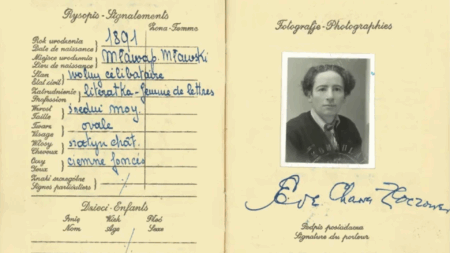 Rysopis - Signalements
Żona - Femme
Rok urodzenia 1891
Date de naissance
Miejsce urodzenia Mława Mławski
Lieu de naissance
Stan wolny célibataire
Etat civil
Zatrudnienie literatka - femme de lettres
Profession
Wzrost średni moy.
Taille
Twarz ovale
Visage
Włosy szatyn chât.
Cheveux
Oczy ciemne foncés
Yeux
Znaki szczególne
Signes particuliers
Dzieci - Enfants
Imię Wiek Płeć
Nom Age Sexe
Fotografje - Photographies
Eve Chawa
Podpis posiadacza
Signature du porteur